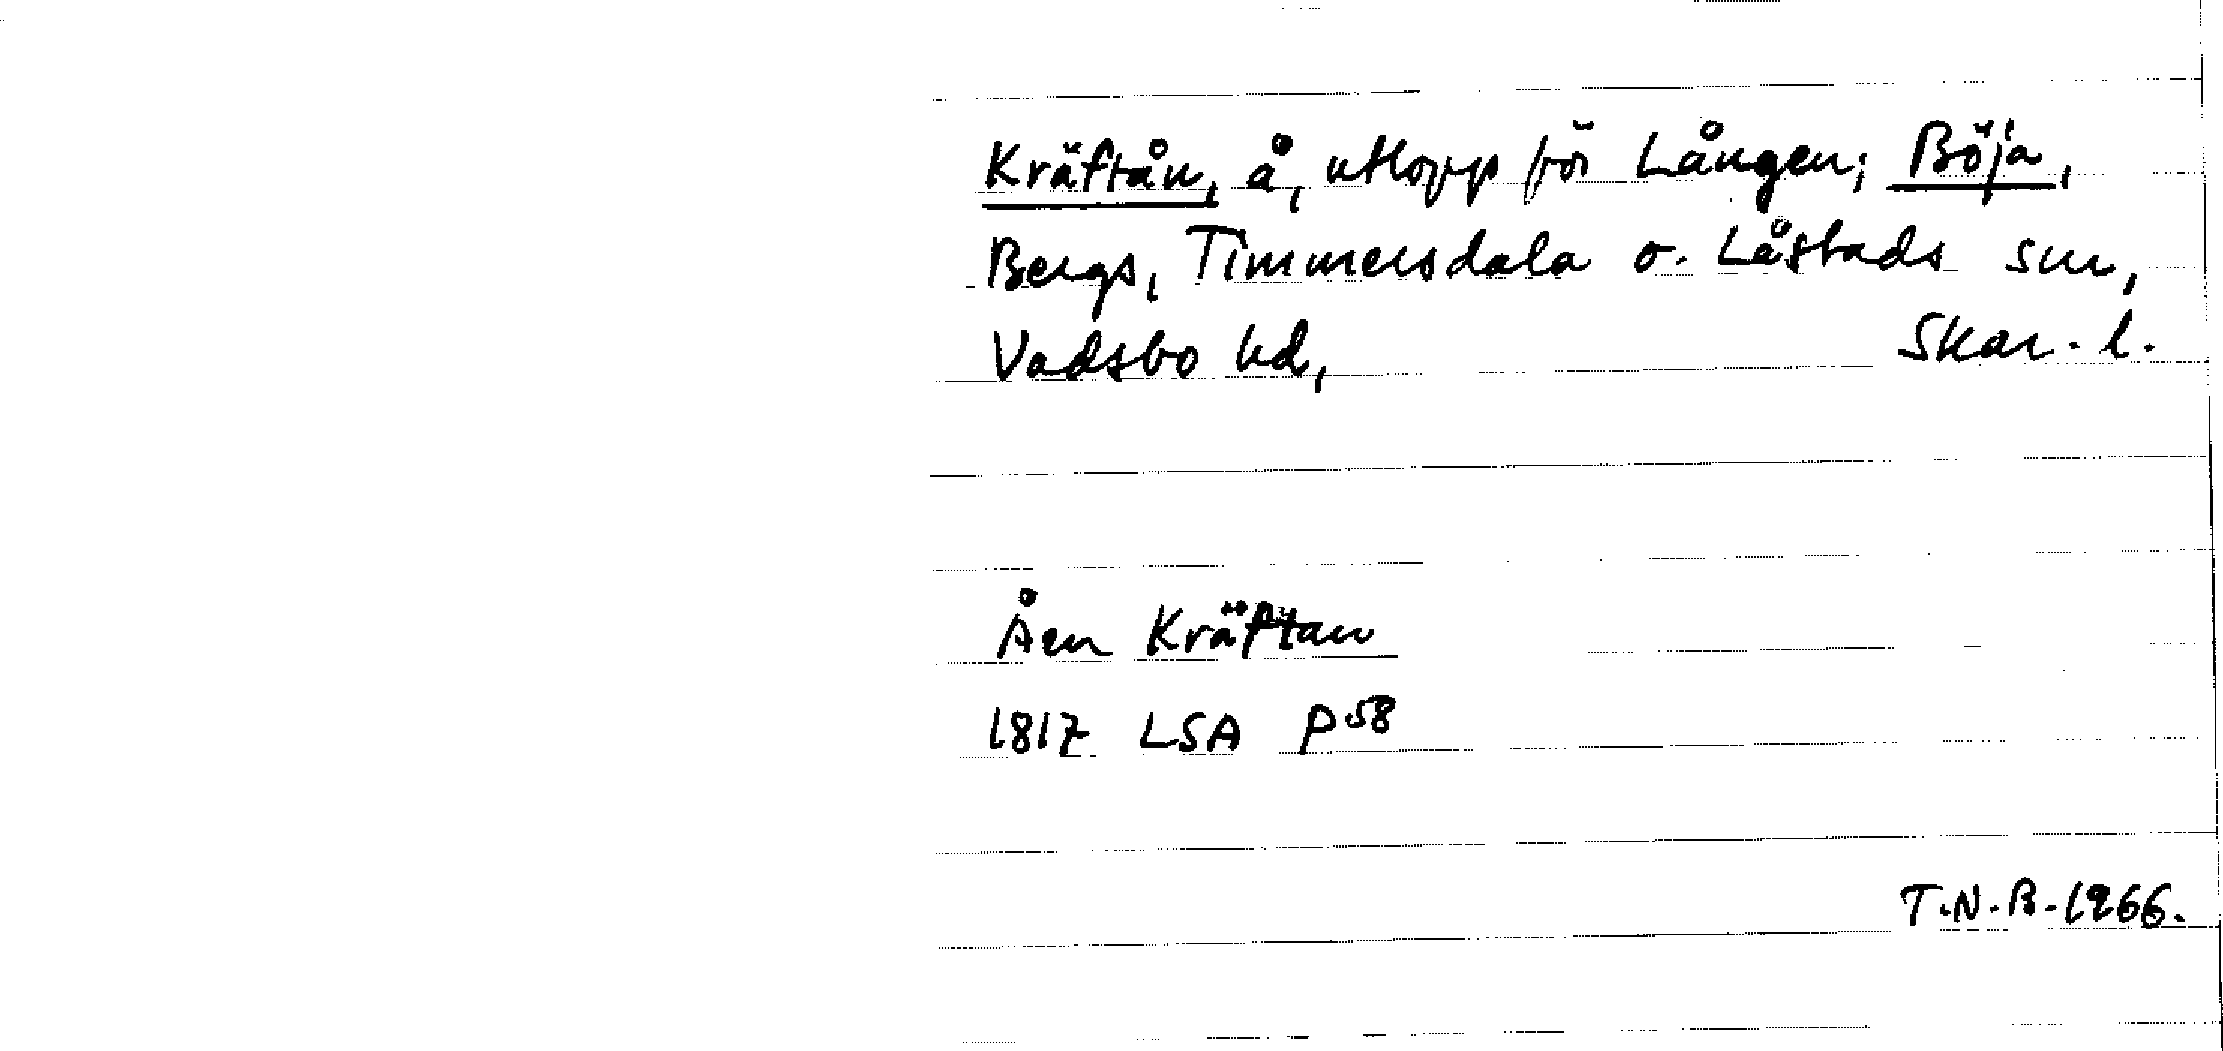 Kräftån, å, utlopp för Lången; Böja,
Bergs, Timmersdala o. Låstads snr,
Vadsbo hd, Skar. l.
Åen Kräftan
1817 LSA P58
T.N.B. 1966.